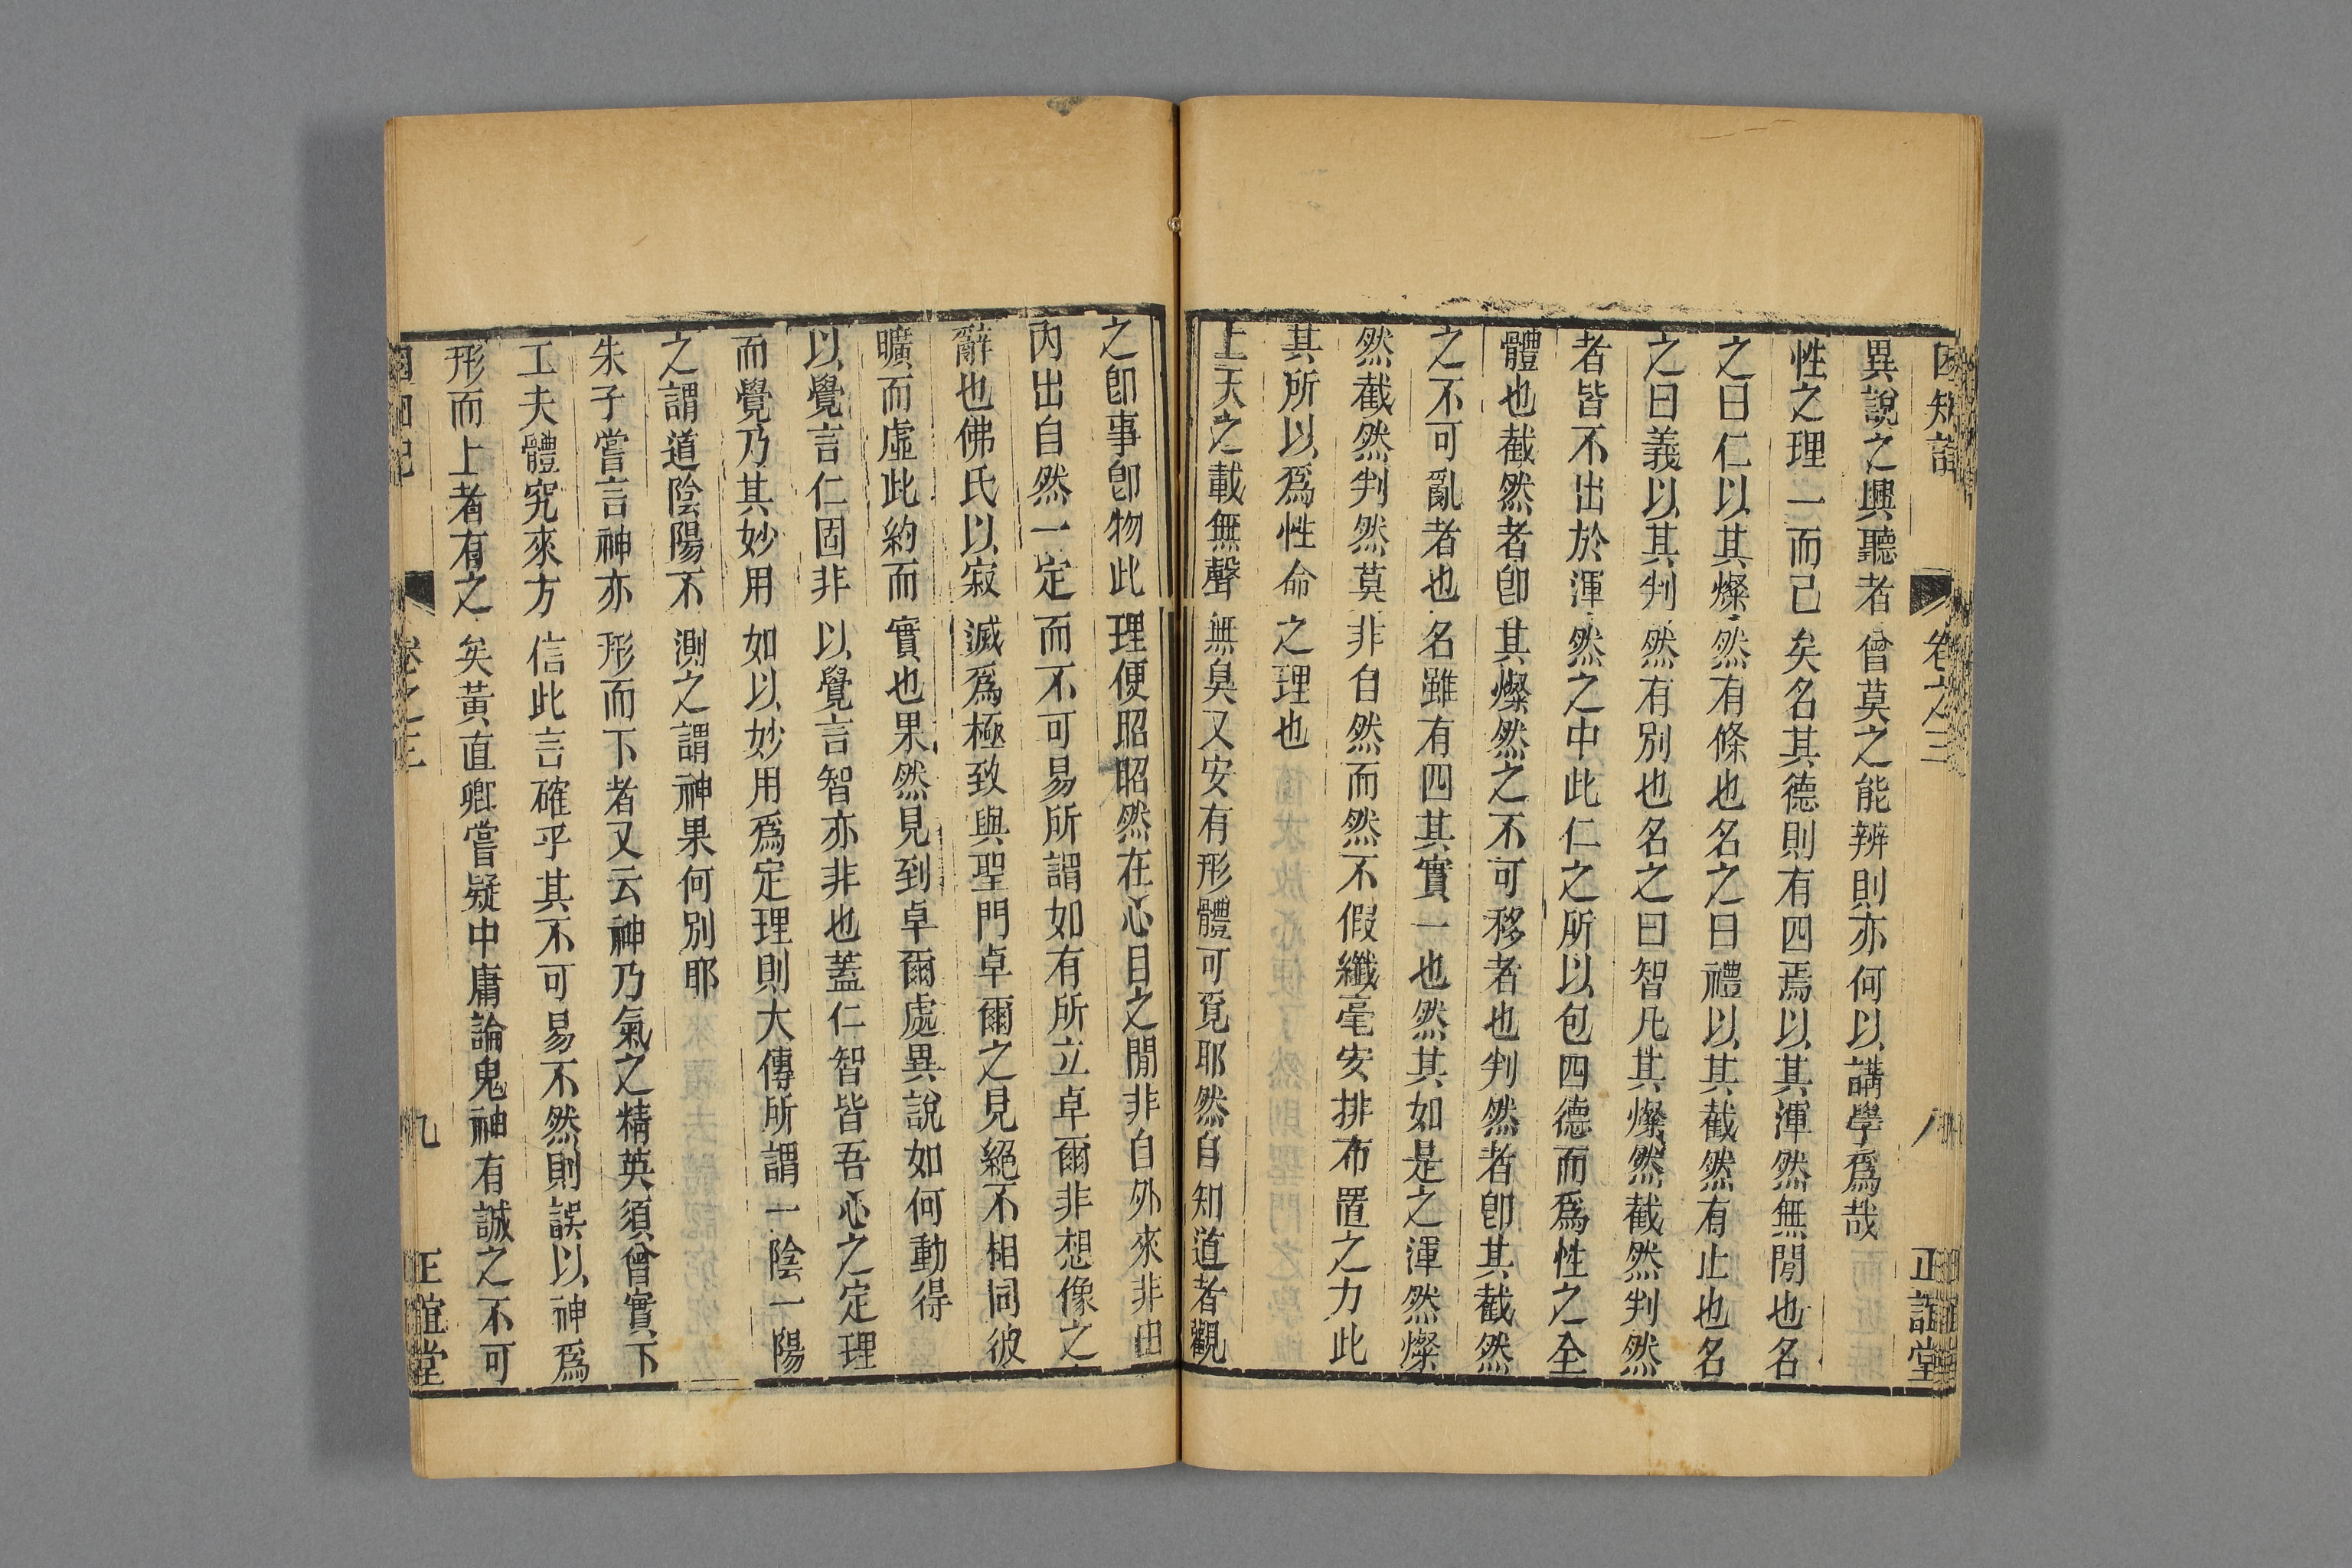 困知記 卷之三 八 正誼堂
異說之興聽者曾莫之能辨則亦何以講學爲哉
性之理一而已矣名其德則有四焉以其渾然無閒也名
之曰仁以其燦然有條也名之曰禮以其截然有止也名
之曰義以其判然有別也名之曰智凡其燦然截然判然
者皆不出於渾然之中此仁之所以包四德而爲性之全
體也截然者卽其燦然之不可移者也判然者卽其截然
之不可亂者也名雖有四其實一也然其如是之渾然燦
然截然判然莫非自然而然不假纖毫安排布置之力此
其所以爲性命之理也
上天之載無聲無臭又安有形體可覓耶然自知道者觀
之卽事卽物此理便昭昭然在心目之閒非自外來非由
內出自然一定而不可易所謂如有所立卓爾非想像之
辭也佛氏以寂滅爲極致與聖門卓爾之見絕不相同彼
曠而虛此約而實也果然見到卓爾處異說如何動得
以覺言仁固非以覺言智亦非也蓋仁智皆吾心之定理
而覺乃其妙用如以妙用爲定理則大傳所謂一陰一陽
之謂道陰陽不測之謂神果何別耶
朱子嘗言神亦形而下者又云神乃氣之精英須曾實下
工夫體究來方信此言確乎其不可易不然則誤以神爲
形而上者有之矣黃直卿嘗疑中庸論鬼神有誠之不可
困知記 卷之三 九 正誼堂